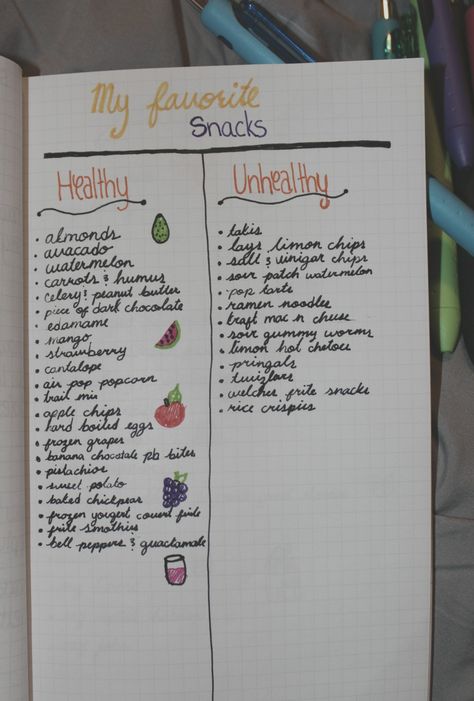 My favorite
Snacks
Healthy
• almonds
• avacado
• watermelon
• carrots & humus
• celery & peanut butter
• piece of dark chocolate
• edamame
• mango
• strawberry
• cantalope
• air pop popcorn
• trail mix
• apple chips
• hard boiled eggs
• frozen grapes
• banana chocolate pb bites
• pistachios
• sweet potato
• baked chickpeas
• frozen yougert covert friite
• friite smothies
• bell peppers & guactamale
Unhealthy
• takis
• lays limon chips
• salt & vinigar chips
• sour patch watermelon
• pop tarts
• ramen noodles
• kraft mac n cheese
• sour gummy worms
• limon hot chetoes
• pringals
• twizlars
• welches friite snacks
• rice crispies